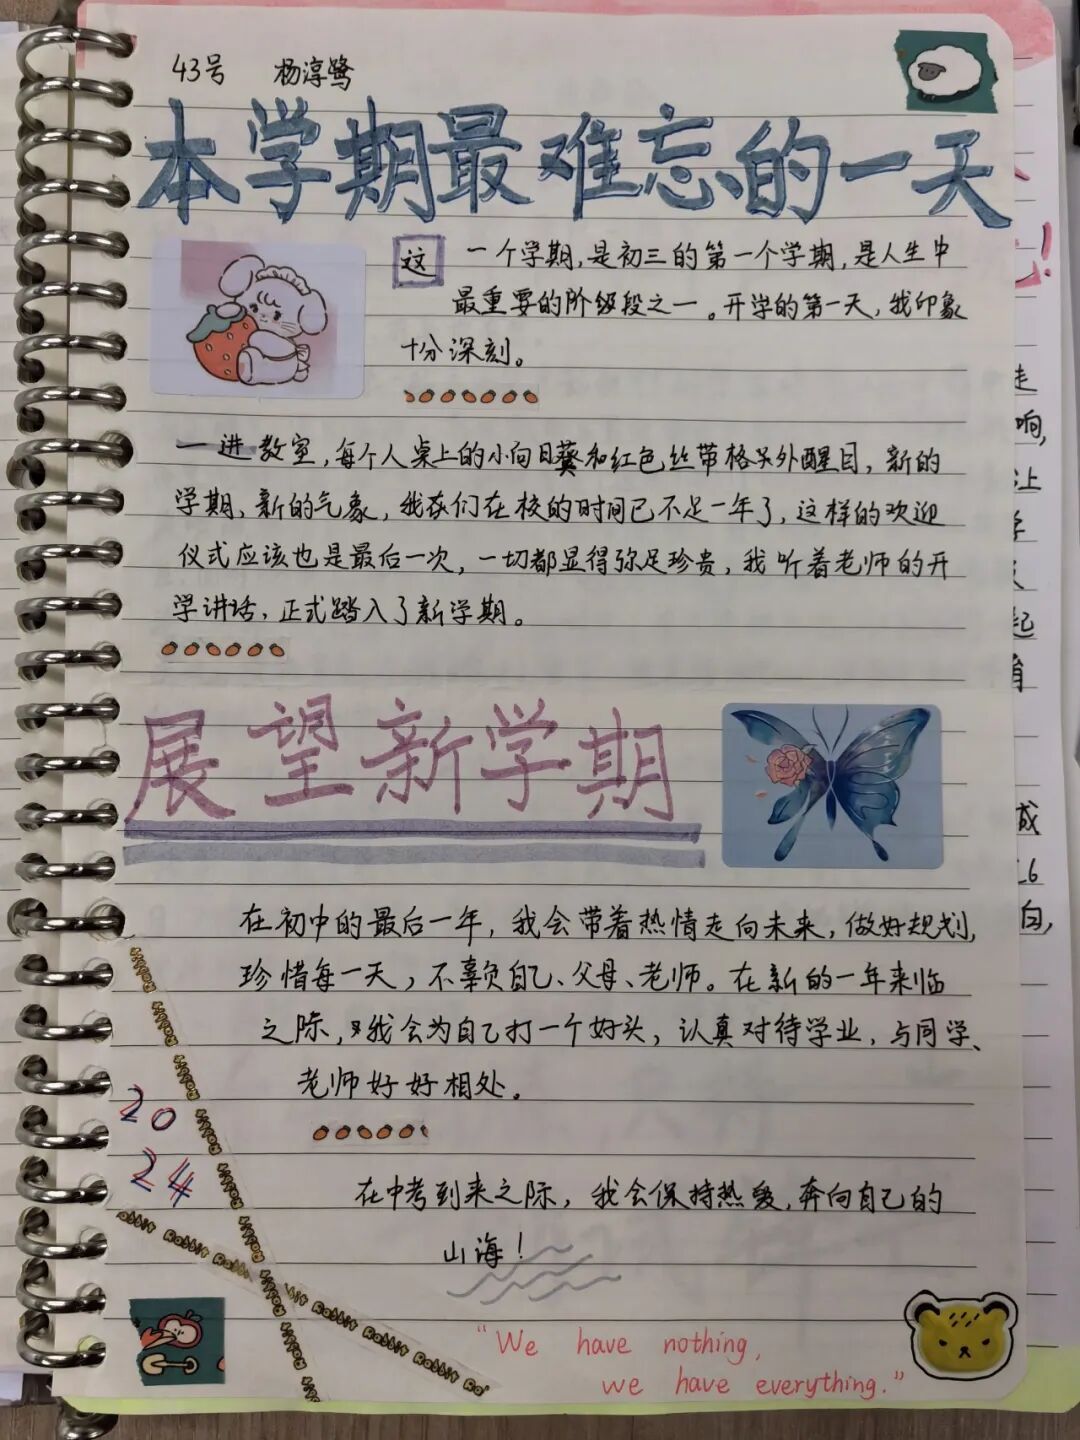 43号 杨淳鹭
本学期最难忘的一天
这一个学期,是初三的第一个学期,是人生中
最重要的阶级段之一。开学的第一天,我印象
十分深刻。
一进教室,每个人桌上的小向日葵和红色丝带格外醒目,新的
学期,新的气象,我们在校的时间已不足一年了,这样的欢迎
仪式应该也是最后一次,一切都显得弥足珍贵,我听着老师的开
学讲话,正式踏入了新学期。
展望新学期
在初中的最后一年,我会带着热情走向未来,做好规划,
珍惜每一天,不辜负自己、父母、老师。在新的一年来临
之际,我会为自己打一个好头,认真对待学业,与同学、
老师好好相处。
20
24
在中考到来之际,我会保持热爱,奔向自己的
山海!
Rabbit Rabbit Rabbit Rabbit Rabbit Rabbit
"We have nothing,
we have everything."